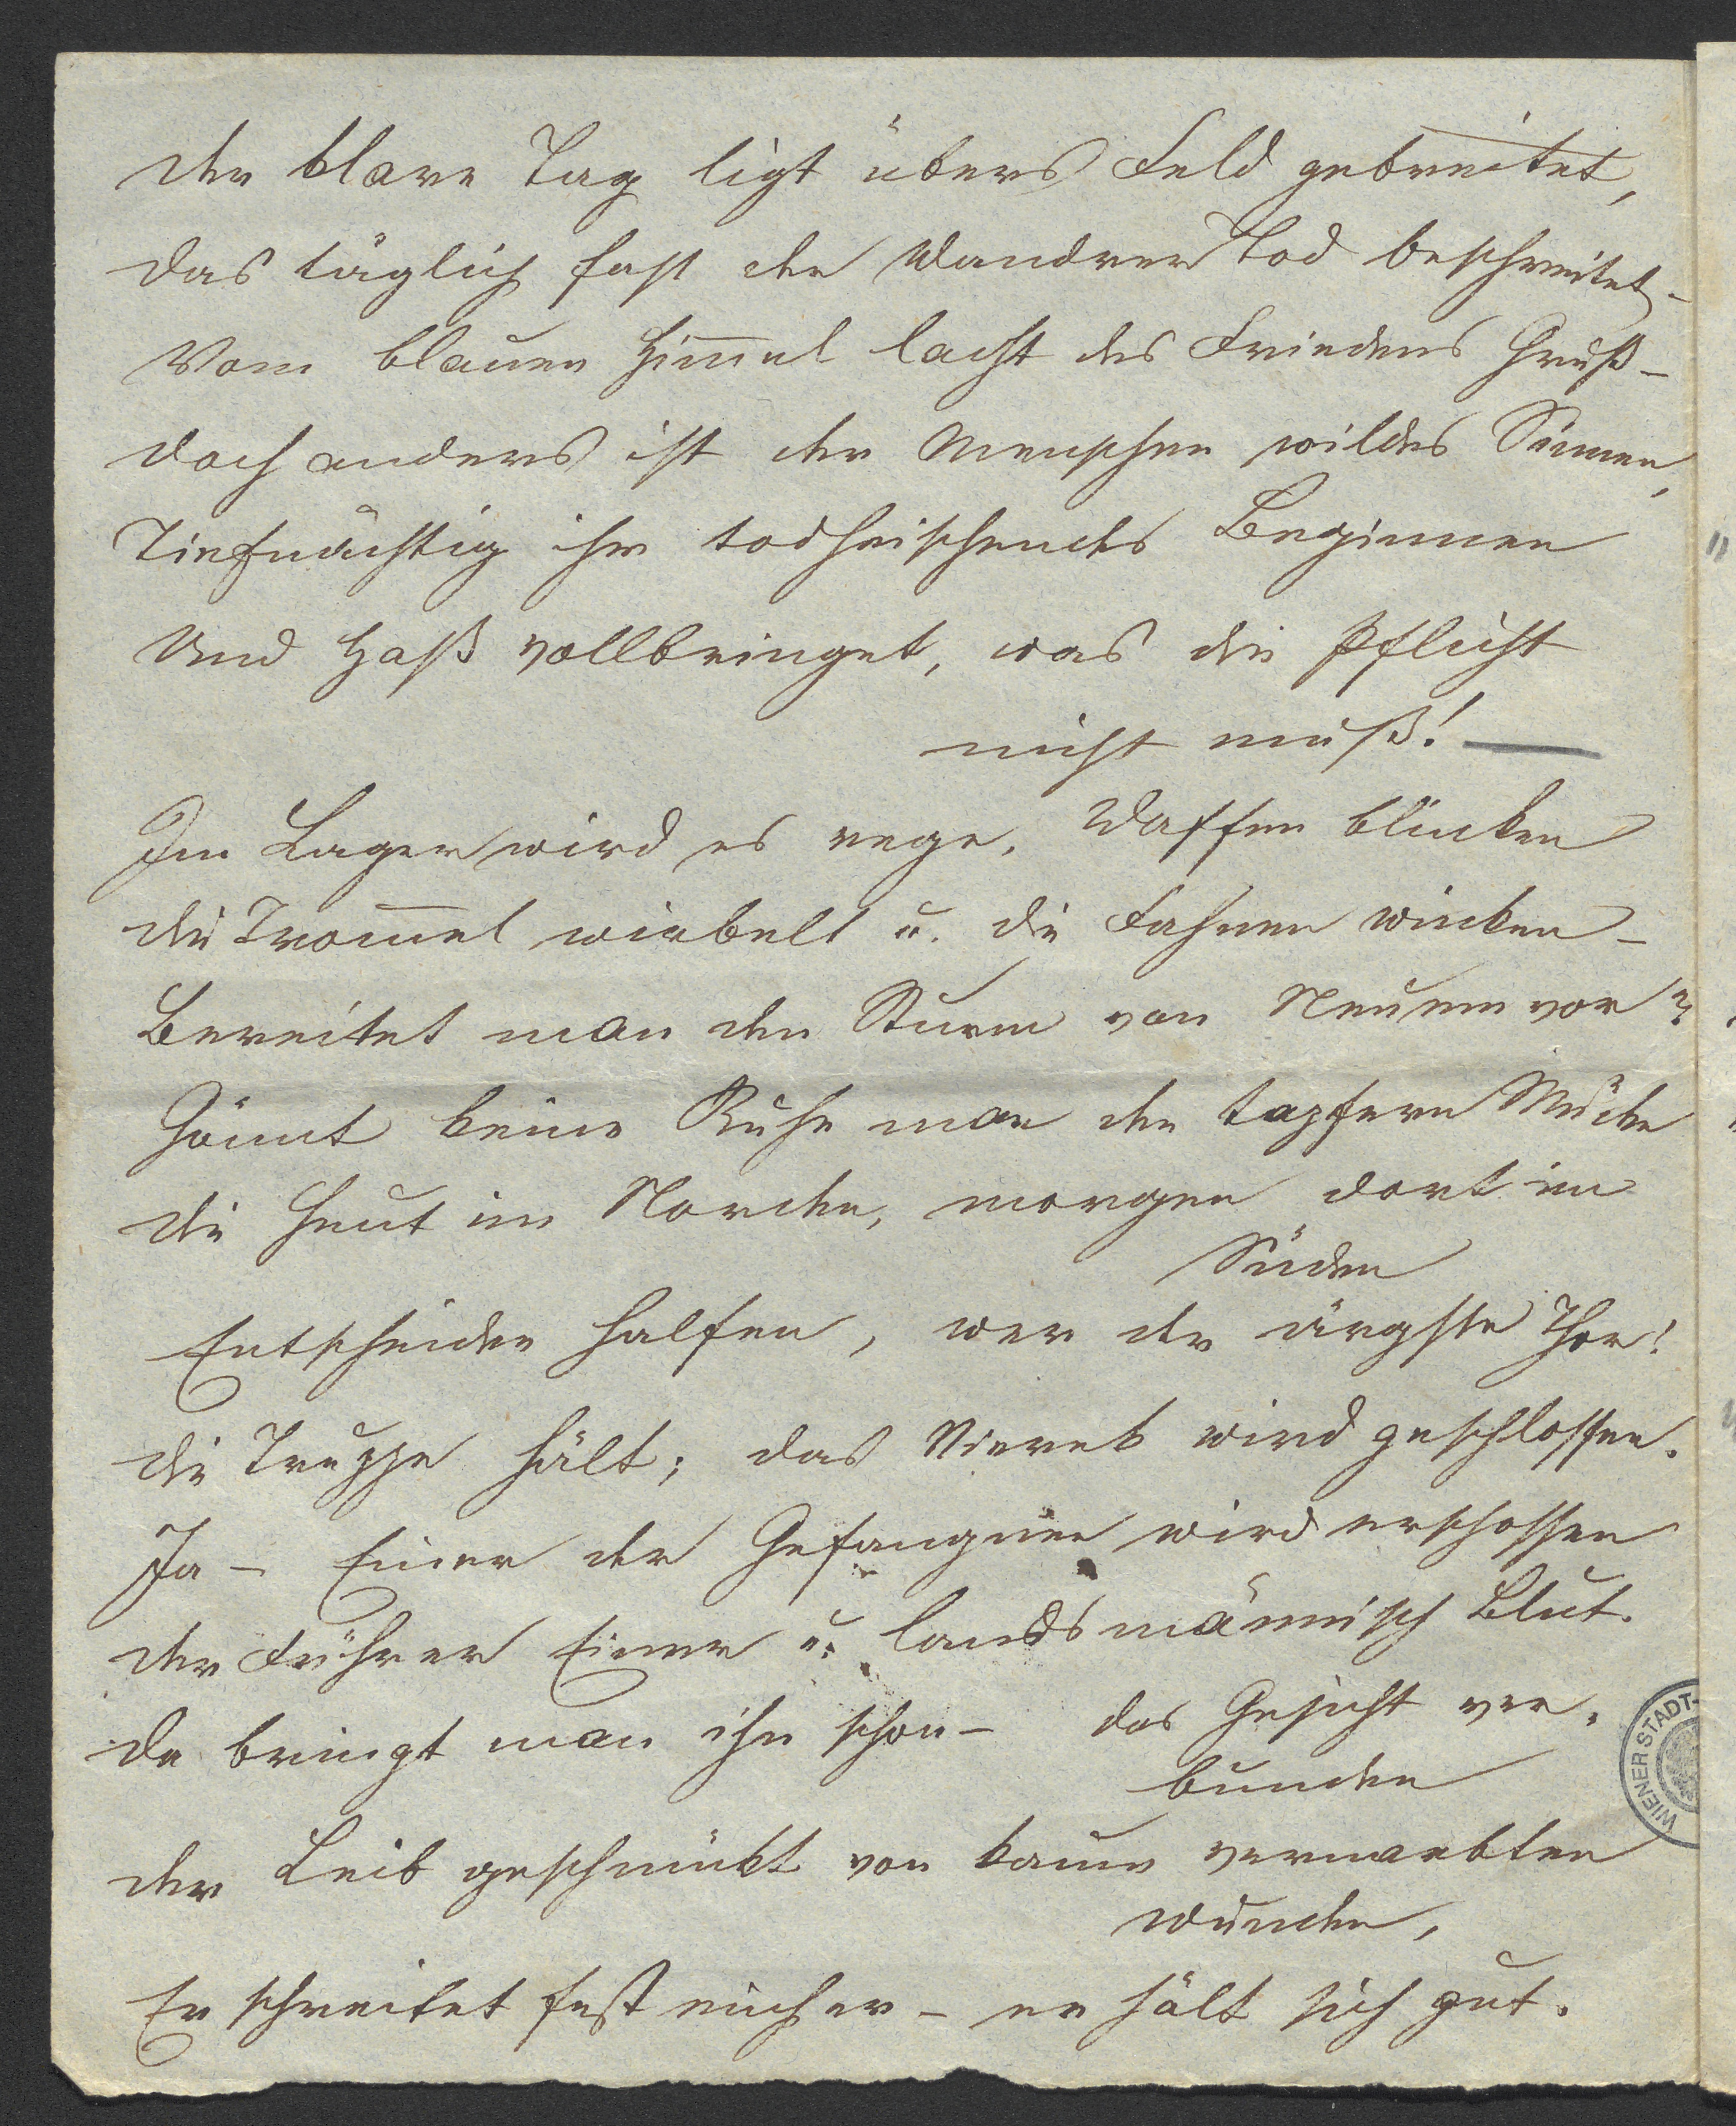 Der klare Tag ligt übers Feld gebreitet,
Das täglich fast der Wandrer Tod beschreitet –
Vom blauen Him̅el lacht des Friedens Gruß –
Doch anders ist der Menschen wildes Sinnen,
Tiefnächtig ihr todheischendes Beginnen
Und Haß vollbringet, was die Pflicht
nicht muß! —
Im Lager wird es rege, Waffen blinken
Die Trom̅el wirbelt u. die Fahnen winken –
Bereitet man den Sturm von Neuem vor?
Gönnt keine Ruhe man den tapfern Müden
Die heut im Norden, morgen dort im
Süden
Entscheiden halfen, wer der ärgste Thor!
Die Truppe hält; das Vierek wird geschlossen.
Ja – Einer der Gefangnen wird erschossen
Der Führer Einer u. landsmännisch Blut.
Da bringt man ihn schon – das Gesicht ver-
bunden
Der Leib geschmükt von kaum vernarbten
Wunden,
Er schreitet fest einher – er hält sich gut.
WIENER STADT-